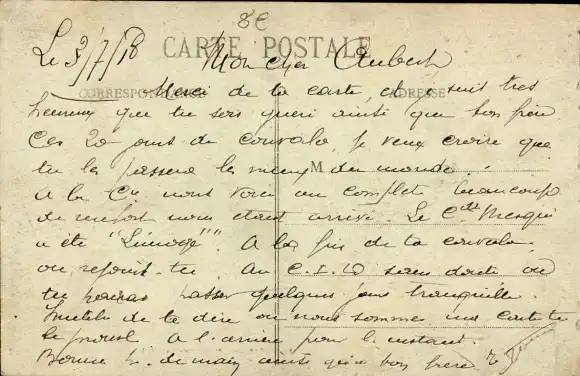 8C
CARTE POSTALE
Le 3/7/18 Mon cher Aubert
CORRESPONDANCE ADRESSE
Merci de ta carte, je suis très
heureux que tu sois guéri ainsi que ton frère
Ces 20 jours de convalo, je veux croire que
tu les passera le mieux du monde.
M
A la Cie nous voici au complet beaucoup
de renfort nous étant arrivé. Le Cdt
a été "Limogé". A la fin de ta convalo
ou rejoins-tu. Au C.I.D sans doute où
tu pourras passer quelques jours tranquille.
Inutile de te dire où nous sommes une carte te
le prouve. A l'arrière pour l'instant.
Bonne de main ainsi qu'à ton frère